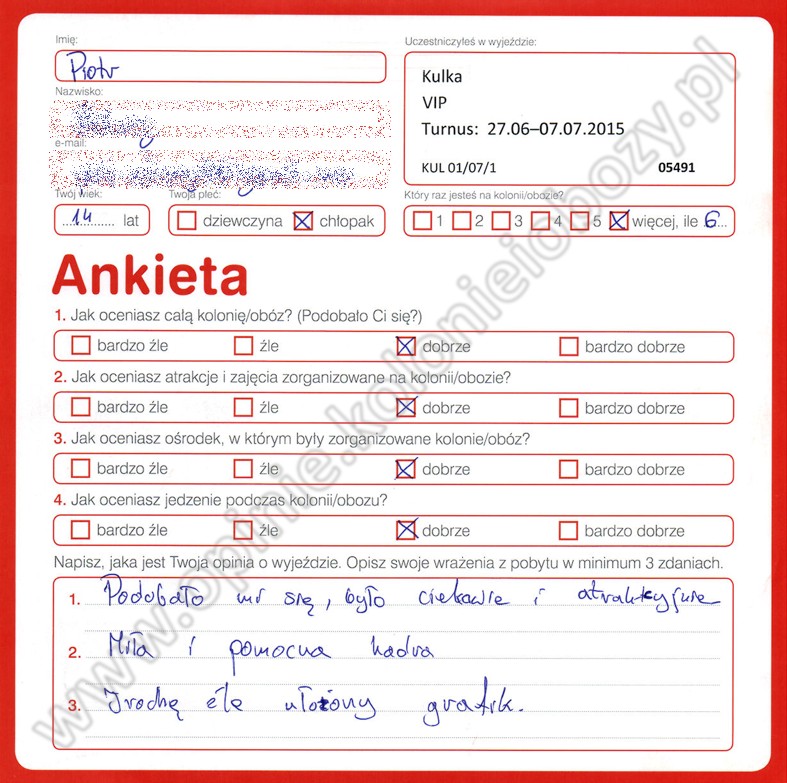 Imię:
Piotr
Uczestniczyłeś w wyjeździe:
Kulka
VIP
Turnus: 27.06–07.07.2015
KUL 01/07/1 05491
Nazwisko:
e-mail:
Twój wiek:
14 lat
Twoja płeć:
dziewczyna chłopak
Który raz jesteś na kolonii/obozie?
1 2 3 4 5 więcej, ile 6
Ankieta
1. Jak oceniasz całą kolonię/obóz? (Podobało Ci się?)
bardzo źle źle dobrze bardzo dobrze
2. Jak oceniasz atrakcje i zajęcia zorganizowane na kolonii/obozie?
bardzo źle źle dobrze bardzo dobrze
3. Jak oceniasz ośrodek, w którym były zorganizowane kolonie/obóz?
bardzo źle źle dobrze bardzo dobrze
4. Jak oceniasz jedzenie podczas kolonii/obozu?
bardzo źle źle dobrze bardzo dobrze
Napisz, jaka jest Twoja opinia o wyjeździe. Opisz swoje wrażenia z pobytu w minimum 3 zdaniach.
1. Podobało mi się, było ciekawie i atrakcyjnie
2. Miła i pomocna kadra
3. Trochę źle ułożony grafik.
www.opinie.kolonieiobozy.pl